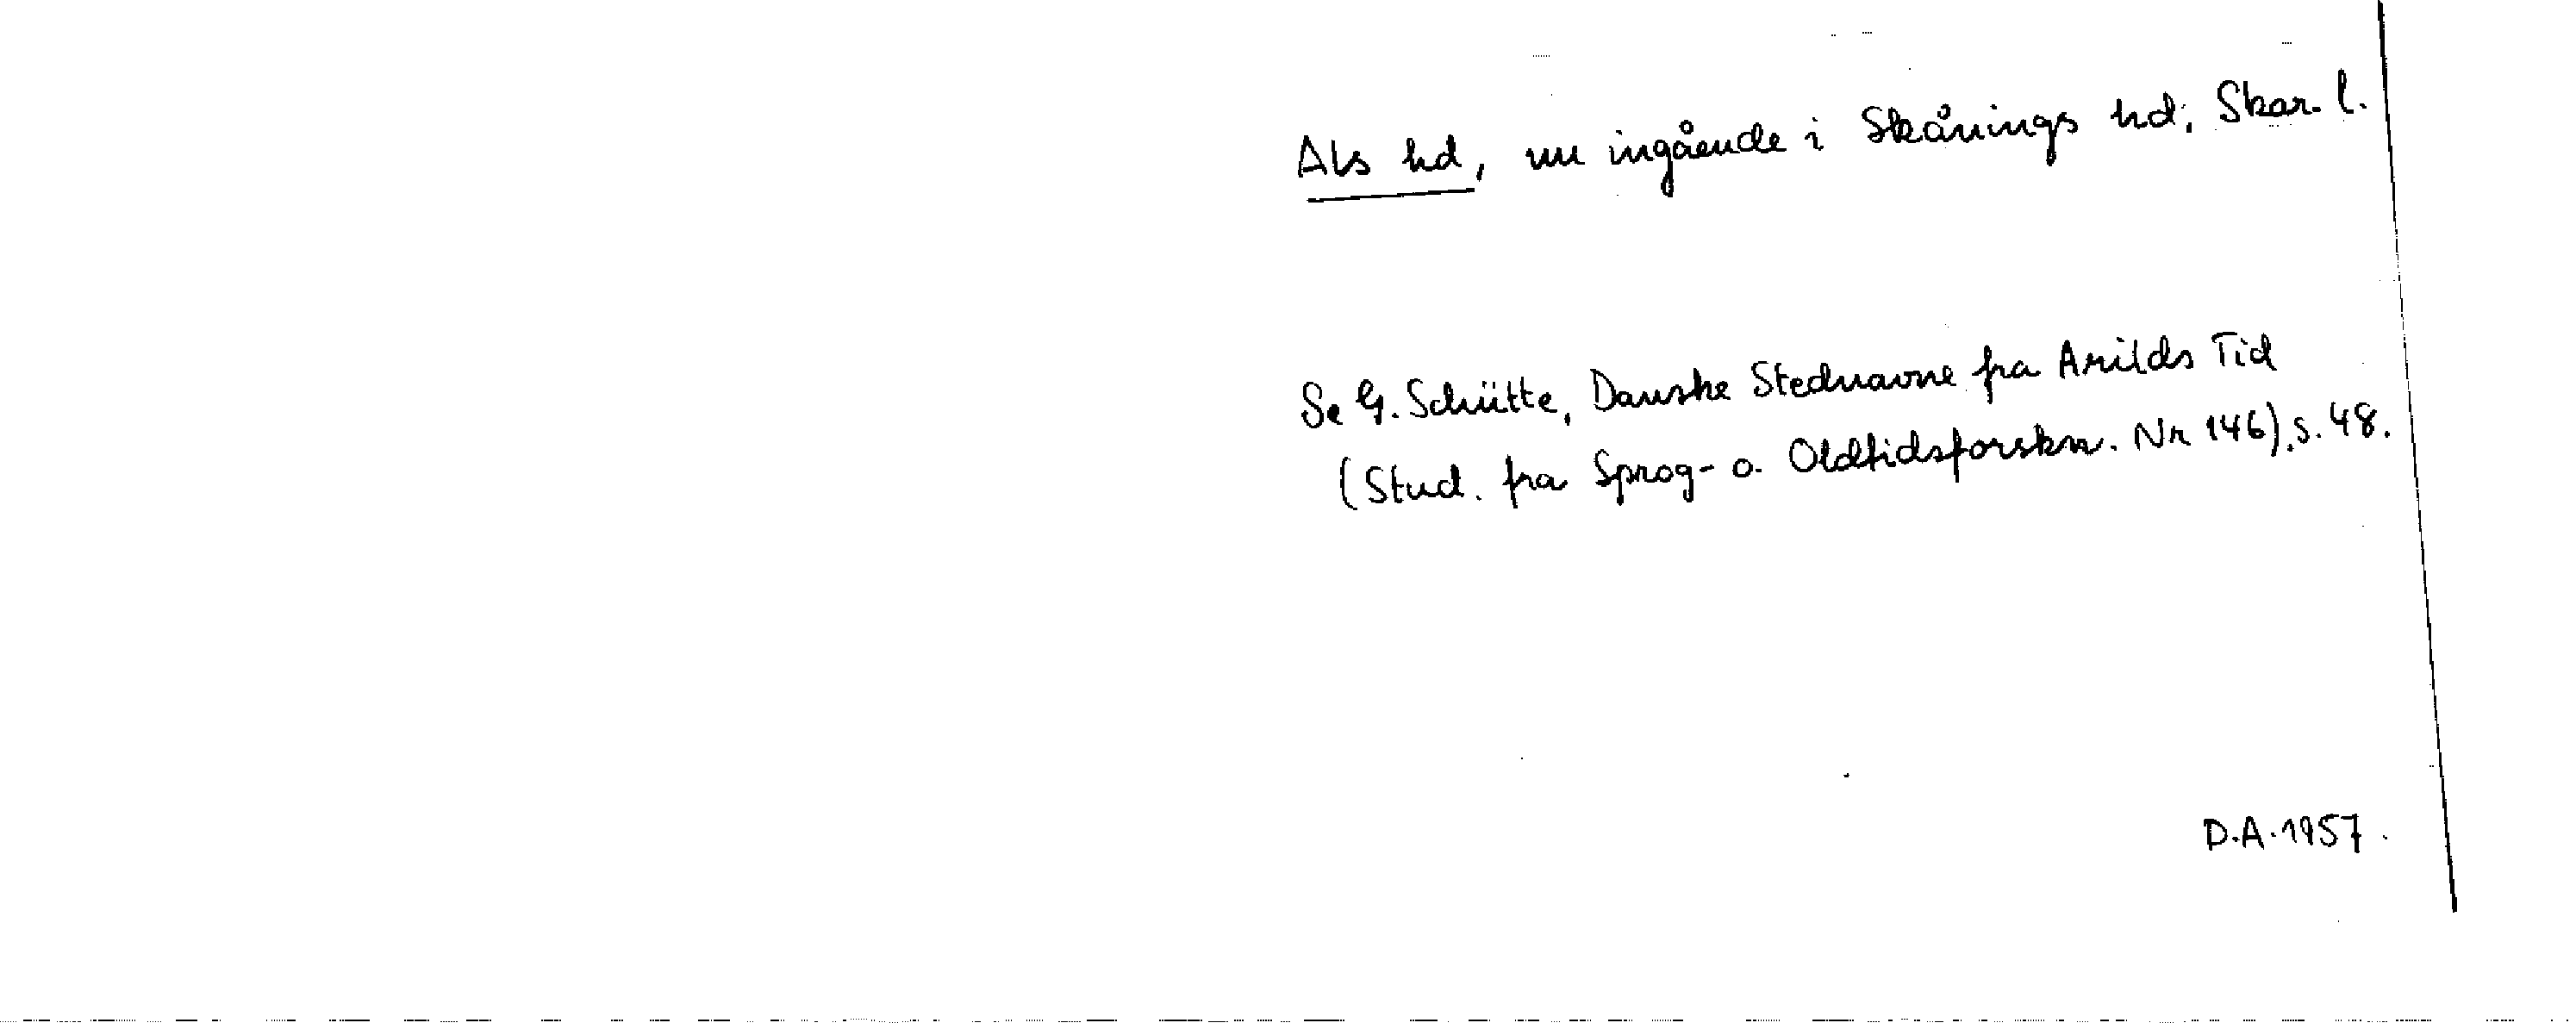 Als hd, nu ingående i Skånings hd, Skar. l.
Se G. Schütte, Danske Stednavne fra Arilds Tid
(Stud. fra Sprog- o. Oldtidsforskn. Nr 146), s. 48.
D.A. 1957.